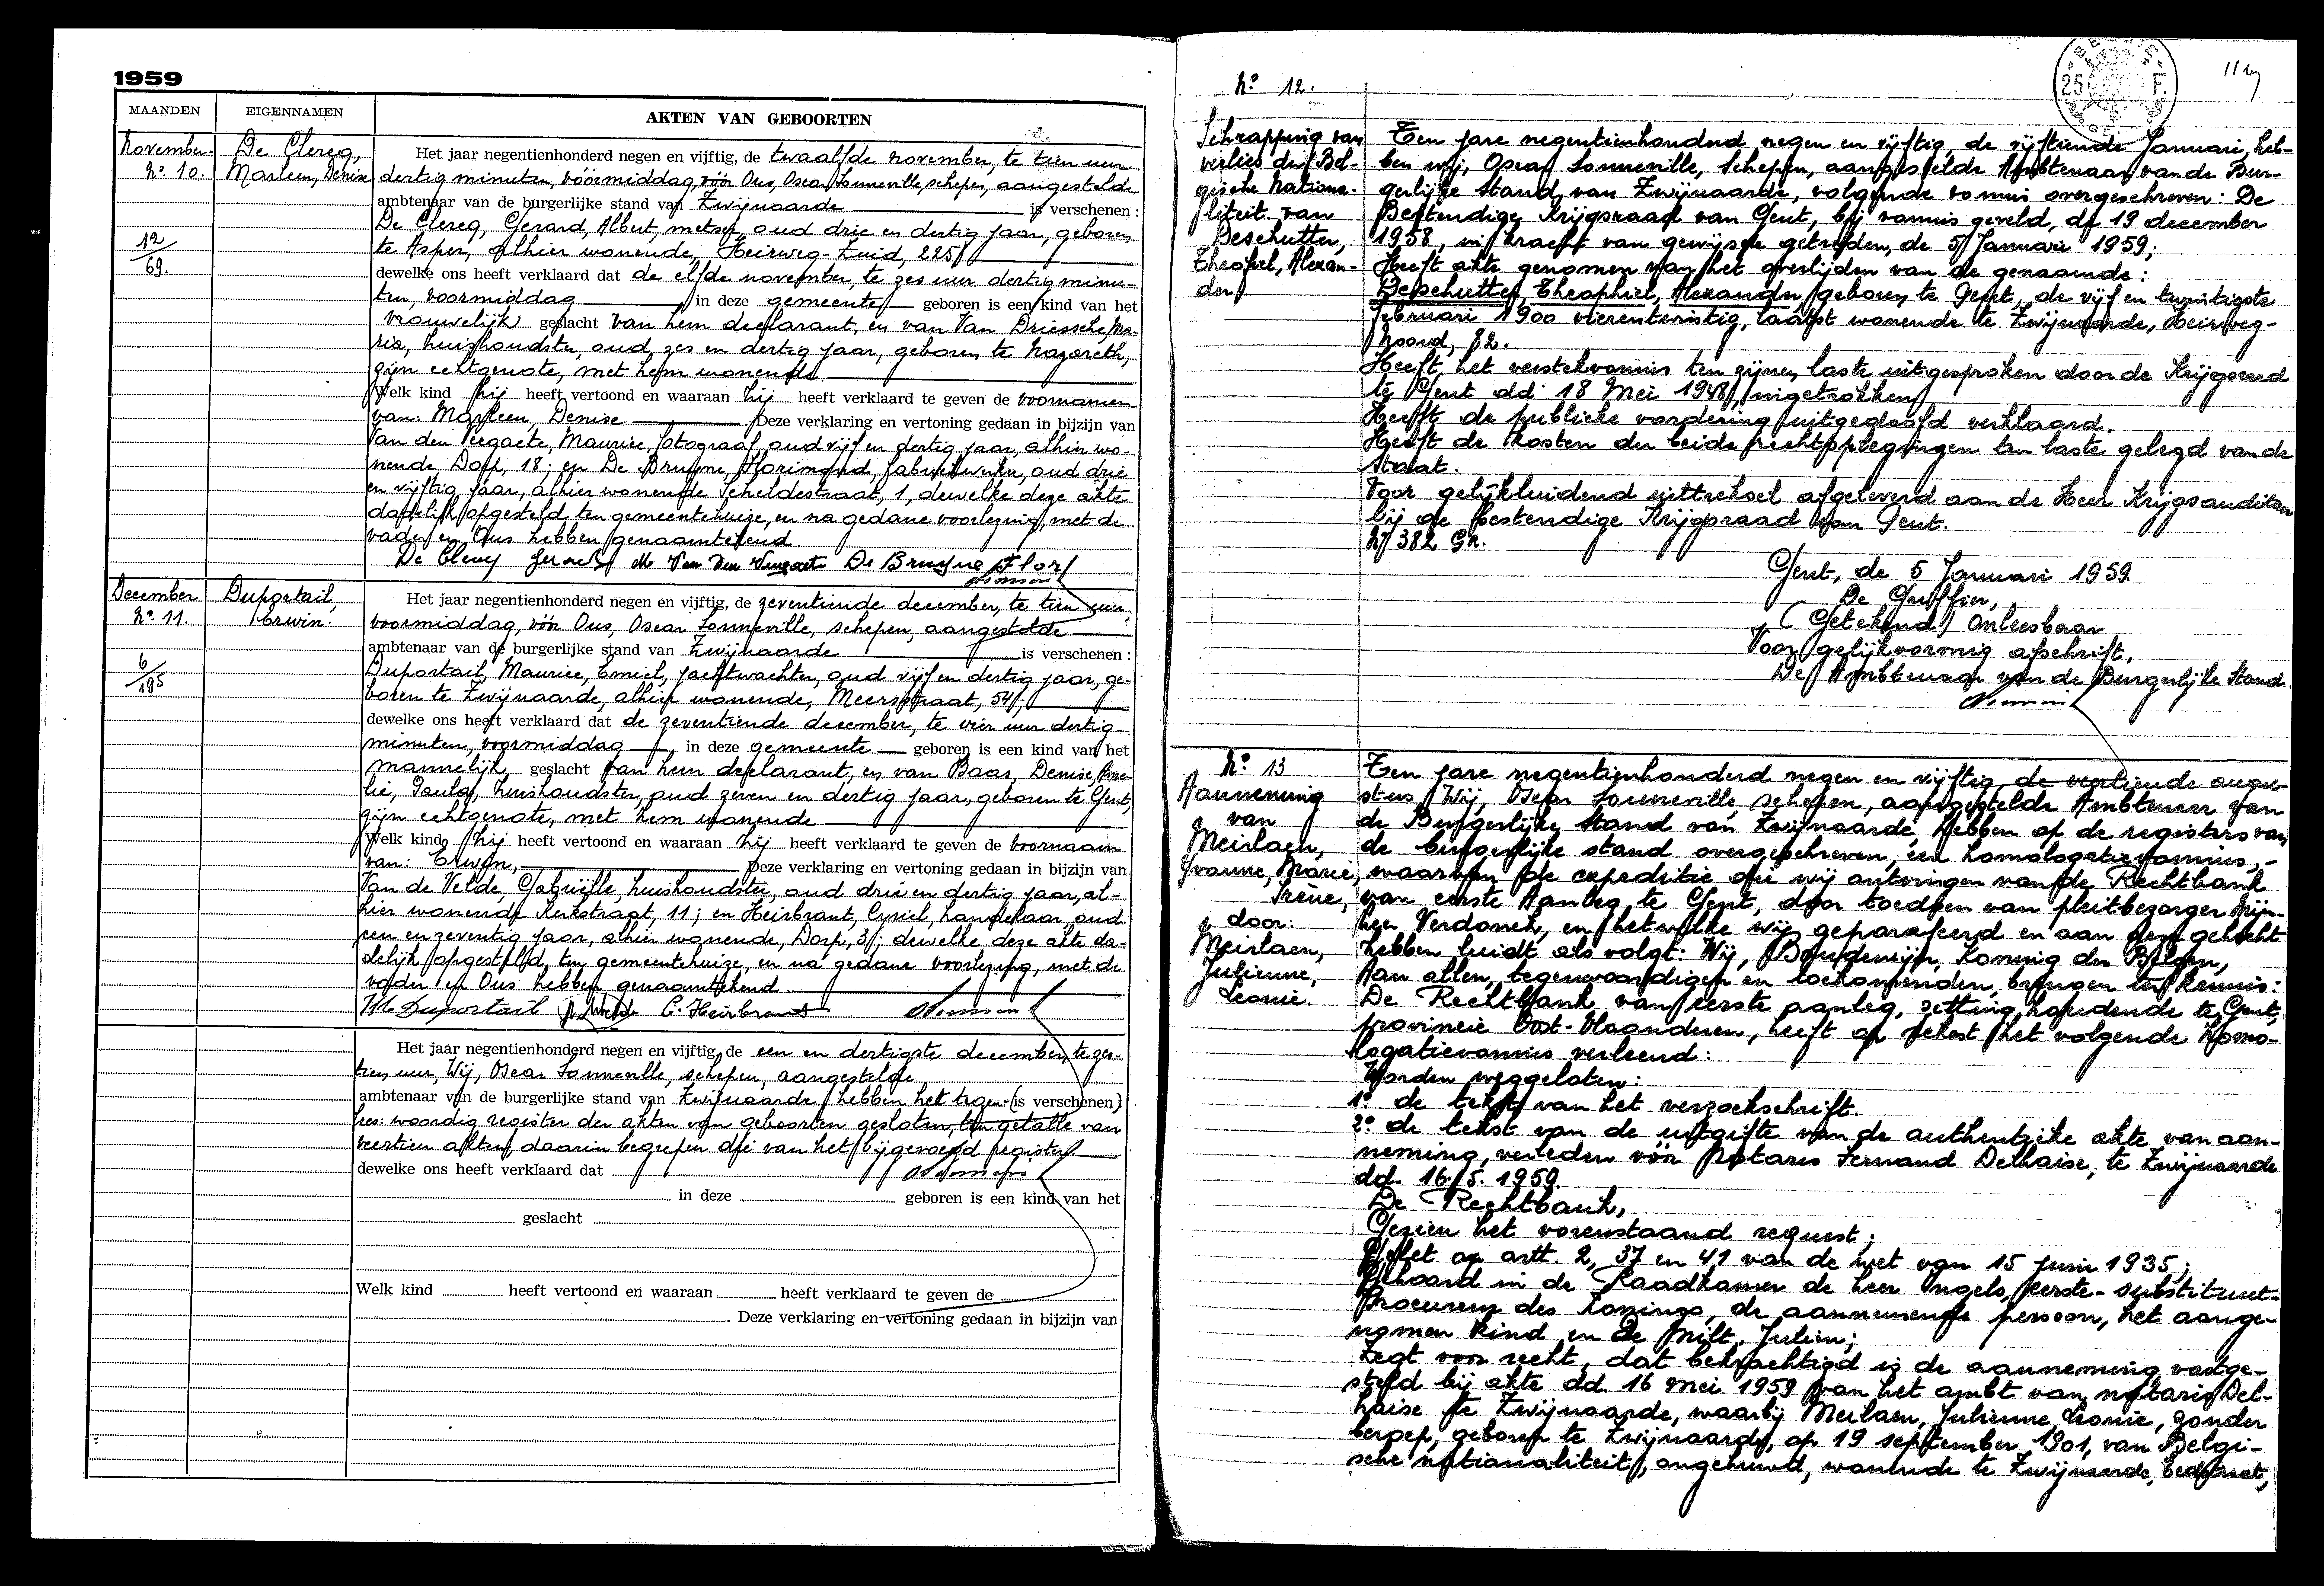 1959
MAANDEN
EIGENNAMEN
AKTEN VAN GEBOORTEN
November
N° 10.
12/69.
De Clercq,
Marleen, Denise
Het jaar negentienhonderd negen en vijftig, de twaalfde november, te tien uur
dertig minuten, vóórmiddag, vóór Ons, Oscar Sonneville, schepen, aangestelde
ambtenaar van de burgerlijke stand van Zwijnaarde is verschenen :
De Clercq, Gerard, Albert, metser, oud drie en dertig jaar, geboren
te Asper, alhier wonende, Heirweg-Zuid, 225,
dewelke ons heeft verklaard dat de elfde november, te zes uur dertig minu-
ten, voormiddag, in deze gemeente geboren is een kind van het
vrouwelijk geslacht van hem declarant, en van Van Driessche, Ma-
ria, huishoudster, oud zes en dertig jaar, geboren te Nazareth,
zijn echtgenote, met hem wonende
Welk kind hij heeft vertoond en waaraan hij heeft verklaard te geven de voornamen
van: Marleen, Denise Deze verklaring en vertoning gedaan in bijzijn van
Van den Veegaete, Maurice, fotograaf, oud vijf en dertig jaar, alhier wo-
nende, Dorp, 18; en De Bruyne, Florimond, fabriekwerker, oud drie
en vijftig jaar, alhier wonende Scheldestraat, 1, dewelke deze akte
dadelijk opgesteld, ten gemeentehuize, en na gedane voorlezing, met de
vader en Ons hebben genaamtekend
De Clercq Gerard M Van Den Veegaete De Bruyne Flor
December
N° 11.
6/195
Duportail,
Erwin.
Het jaar negentienhonderd negen en vijftig, de zeventiende december, te tien uur,
voormiddag, vóór Ons, Oscar Sonneville, schepen, aangestelde
ambtenaar van de burgerlijke stand van Zwijnaarde is verschenen :
Duportail, Maurice, Emiel, jachtwachter, oud vijf en dertig jaar, ge-
boren te Zwijnaarde, alhier wonende, Meersstraat, 54;
dewelke ons heeft verklaard dat de zeventiende december, te vier uur dertig
minuten, voormiddag, in deze gemeente geboren is een kind van het
mannelijk geslacht van hem declarant, en van Baas, Denise, Eme-
lie, Paula, huishoudster, oud zeven en dertig jaar, geboren te Gent,
zijn echtgenote, met hem wonende
Welk kind hij heeft vertoond en waaraan hij heeft verklaard te geven de voornaam
van: Erwin, Deze verklaring en vertoning gedaan in bijzijn van
Van de Velde, Gabriëlle, huishoudster, oud drie en dertig jaar, al-
hier wonende Kerkstraat, 11; en Heirbrant, Cyriel, handelaar, oud
een en zeventig jaar, alhier wonende, Dorp, 3; dewelke deze akte da-
delijk opgesteld, ten gemeentehuize, en na gedane voorlezing, met de
vader en Ons hebben genaamtekend.
M Duportail C. Heirbrant
Het jaar negentienhonderd negen en vijftig, de een en dertigste december, te zes-
tien uur, Wij, Oscar Sonneville, schepen, aangestelde
ambtenaar van de burgerlijke stand van Zwijnaarde hebben het tegen- (is verschenen)
lees: woordig register der akten van geboorten gesloten, ten getalle van
veertien akten, daarin begrepen die van het bijgevoegd register.
dewelke ons heeft verklaard dat
in deze geboren is een kind van het
geslacht
Welk kind heeft vertoond en waaraan heeft verklaard te geven de
. Deze verklaring en vertoning gedaan in bijzijn van
25 F.
N° 12.
Schrapping van
verlies der Bel-
gische Nationa-
liteit van
Deschutter,
Theofiel, Alexan-
der
Ten jare negentienhonderd negen en vijftig, de vijftiende Januari, heb-
ben wij, Oscar Sonneville, Schepen, aangestelde Ambtenaar van de Bur-
gerlijke Stand van Zwijnaarde, volgende vonnis overgeschreven: De
Bestendige Krijgsraad van Gent, bij vonnis geveld, de 19 december
1958, in kracht van gewijsde getreden, de 5 Januari 1959;
Heeft akte genomen van het overlijden van de genaamde:
Deschutter, Theophiel, Alexander, geboren te Gent, de vijf en twintigste
Februari 1900 vierentwintig, laatst wonende te Zwijnaarde, Heirweg-
Noord, 82.
Heeft het verstekvonnis ten zijnen laste uitgesproken door de Krijgsraad
te Gent dd. 18 Mei 1948, ingetrokken,
Heeft de publieke vordering uitgedoofd verklaard.
Heeft de kosten der beide rechtsplegingen ten laste gelegd van de
Staat.
Voor gelijkluidend uittreksel afgeleverd aan de Heer Krijgsauditeur
bij de Bestendige Krijgsraad van Gent.
N° 382 Gr.
Gent, de 5 Januari 1959.
De Griffier,
(Getekend) Onleesbaar
Voor gelijkvormig afschrift,
De Ambtenaar van de Burgerlijke Stand.
N° 13
Aanneming
van
Meirlaen,
Yvonne, Marie,
Irène,
door:
Meirlaen,
Julienne,
Leonie.
Ten jare negentienhonderd negen en vijftig, de veertiende augu-
stus Wij, Oscar Sonneville, schepen, aangestelde Ambtenaar van
de Burgerlijke Stand van Zwijnaarde, hebben op de registers van
de burgerlijke stand overgeschreven, een homologatievonnis,-
waarvan de expeditie die wij ontvingen van de Rechtbank
van eerste Aanleg te Gent, door toedoen van pleitbezorger Mijn-
heer Verdonck, en hetwelke wij geparafeerd en aan deze gehecht
hebben luidt als volgt: Wij, Boudewijn, Koning der Belgen,
Aan allen, tegenwoordigen en toekomenden, brengen ter kennis:
De Rechtbank van eerste aanleg, zetting houdende te Gent,
provincie Oost-Vlaanderen, heeft op rekest het volgende homo-
logatievonnis verleend:
Worden weggelaten:
1° de tekst van het verzoekschrift.
2° de tekst van de uitgifte van de authentieke akte van aan-
neming, verleden vóór Notaris Fernand Delhaise, te Zwijnaarde
dd. 16.5.1959.
De Rechtbank,
Gezien het vorenstaand request;
Gelet op artt. 2, 37 en 41 van de wet van 15 juni 1935;
Gehoord in de Raadkamer de heer Ingels, eerste-substituut-
Procureur des Konings, de aannemende persoon, het aange-
nomen kind en de Milt. Julien;
Zegt voor recht, dat bekrachtigd is de aanneming vastge-
steld bij akte dd. 16 mei 1959 van het ambt van notaris Del-
haise te Zwijnaarde, waarbij Meirlaen, Julienne, Leonie, zonder
beroep, geboren te Zwijnaarde, op 19 september 1901, van Belgi-
sche nationaliteit, ongehuwd, wonende te Zwijnaarde,